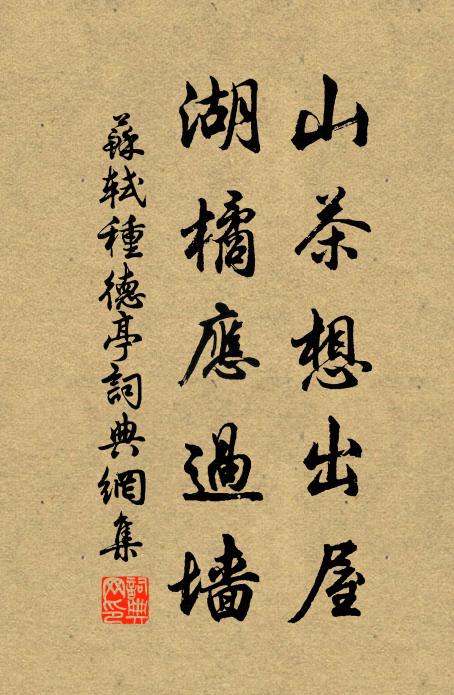 山茶想出屋
湖橘應過墙
蘇軾種德亭詞典網集
詞典网印